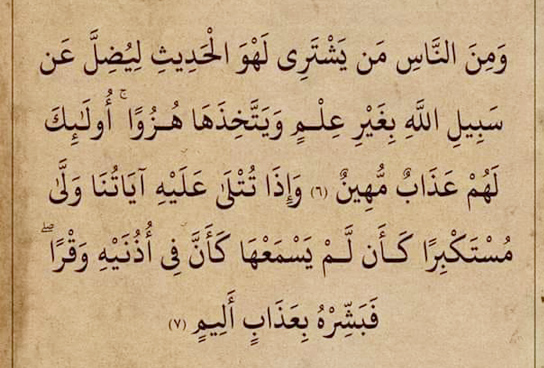 وَمِنَ النَّاسِ مَن يَشْتَرِى لَهْوَ الْحَدِيثِ لِيُضِلَّ عَن
سَبِيلِ اللَّهِ بِغَيْرِ عِلْمٍ وَيَتَّخِذَهَا هُزُوًا ۚ أُولَٰئِكَ
لَهُمْ عَذَابٌ مُّهِينٌ ﴿٦﴾ وَإِذَا تُتْلَىٰ عَلَيْهِ آيَاتُنَا وَلَّىٰ
مُسْتَكْبِرًا كَأَن لَّمْ يَسْمَعْهَا كَأَنَّ فِى أُذُنَيْهِ وَقْرًا ۖ
فَبَشِّرْهُ بِعَذَابٍ أَلِيمٍ ﴿٧﴾